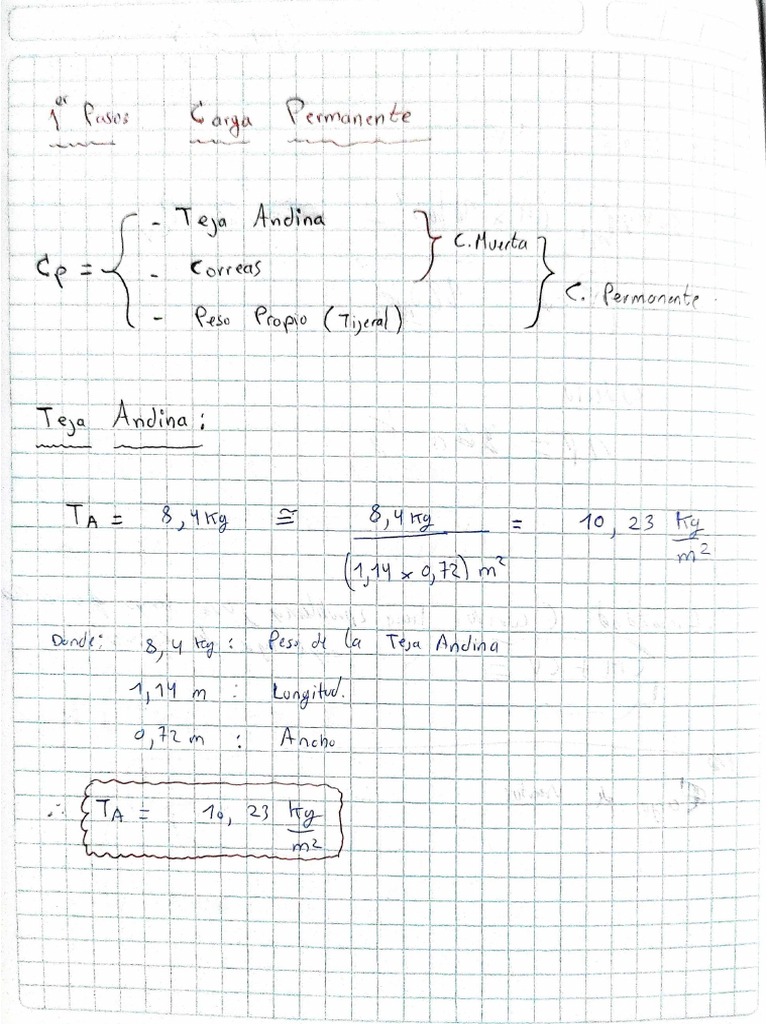 1er Pasos Carga Permanente
- Teja Andina
C. Muerta
Cp = - Correas
C. Permanente.
- Peso Propio (Tijeral)
Teja Andina:
TA = 8,4 Kg ≅ 8,4 Kg / (1,14 x 0,72) m² = 10,23 Kg/m²
Donde: 8,4 Kg : Peso de la Teja Andina
1,14 m : Longitud.
0,72 m : Ancho
∴ TA = 10,23 Kg/m²